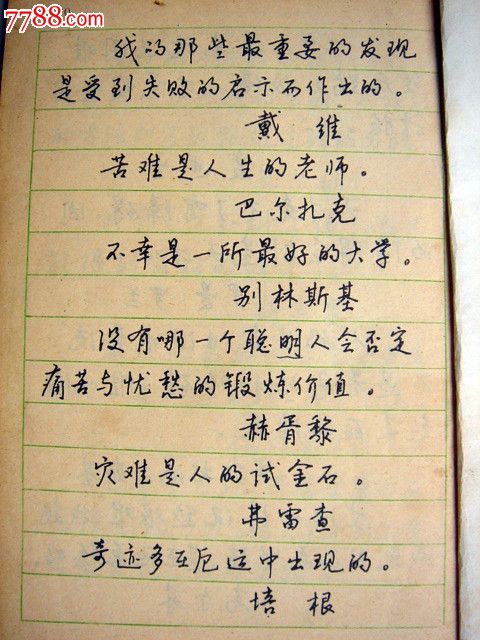 7788.com
我的那些最重要的发现
是受到失败的启示而作出的。
戴维
苦难是人生的老师。
巴尔扎克
不幸是一所最好的大学。
别林斯基
没有哪一个聪明人会否定
痛苦与忧愁的锻炼价值。
赫胥黎
灾难是人的试金石。
弗雷查
奇迹多在厄运中出现的。
培根